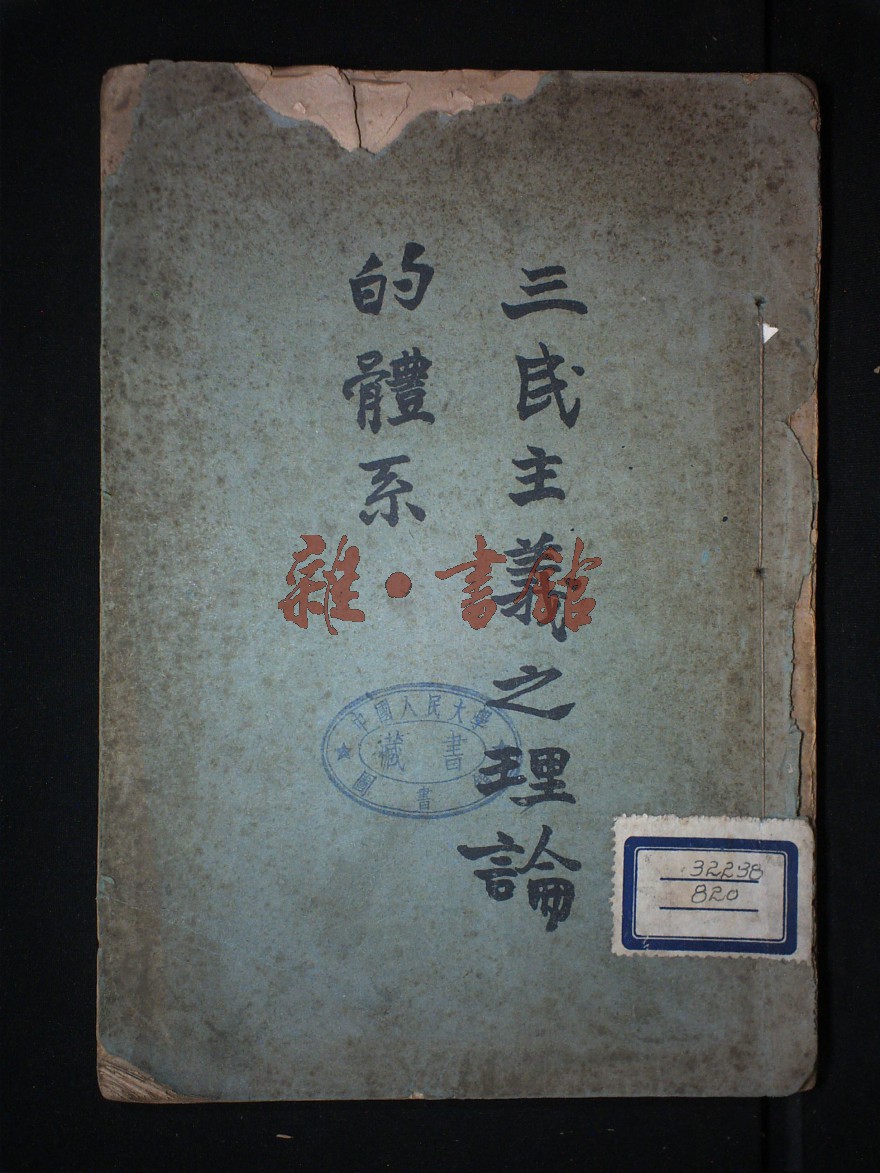 三民主義之理論
的體系
雜·書館
中國人民大學
藏書
圖書
32238
820